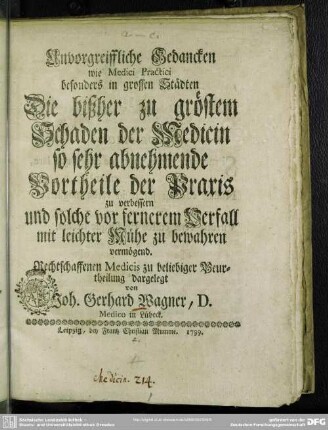 Unvorgreiffliche Gedancken
wie Medici Practici
besonders in grossen Städten
Die bißher zu gröstem
Schaden der Medicin
so sehr abnehmende
Vortheile der Praxis
zu verbessern
und solche vor fernerem Verfall
mit leichter Mühe zu bewahren
vermögend.
Rechtschaffenen Medicis zu beliebiger Beur-
theilung dargelegt
von
Joh. Gerhard Wagner, D.
Medico in Lübeck.
Leipzig, bey Frantz Christian Mumme.
Medicin. 214.